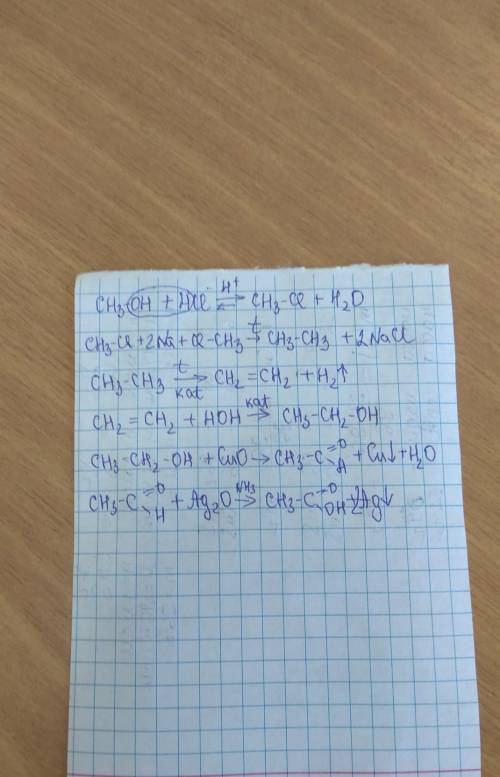 CH₃OH + HCl ⇌ H⁺ CH₃-Cl + H₂O
CH₃-Cl + 2Na + Cl-CH₃ →t CH₃-CH₃ + 2NaCl
CH₃-CH₃ →t kat CH₂=CH₂ + H₂↑
CH₂=CH₂ + HOH →kat CH₃-CH₂-OH
CH₃-CH₂-OH + CuO → CH₃-C=O H + Cu↓ + H₂O
CH₃-C=O H + Ag₂O →NH₃ CH₃-C=O OH + 2Ag↓